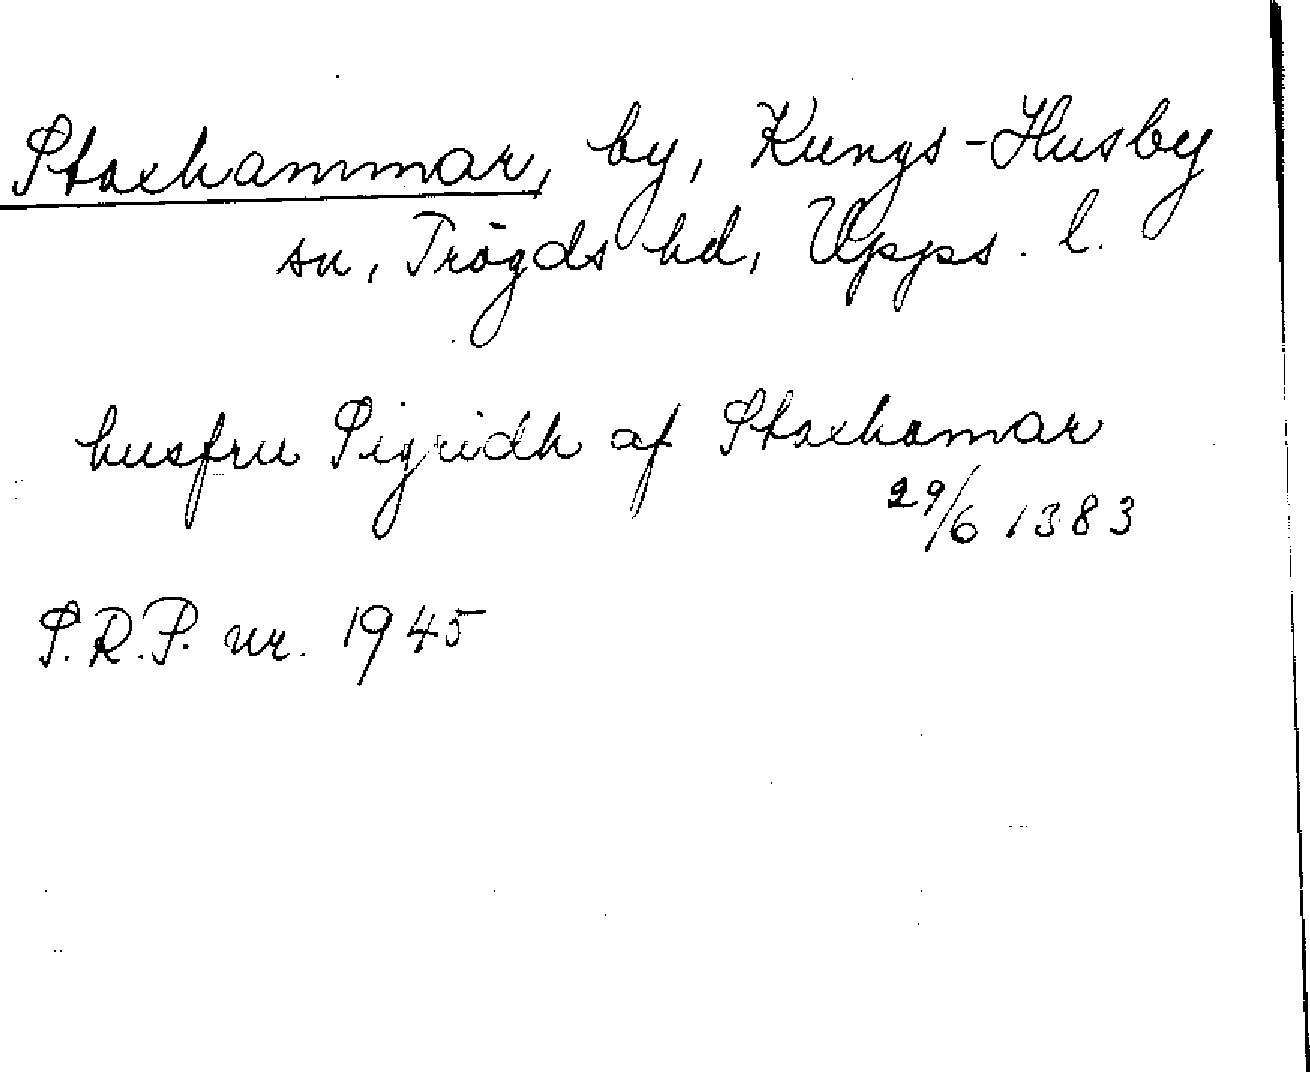 Stoxhammar, by, Kungs-Husby
sn, Trögds hd, Upps. l.
husfru Sigridh af Stoxhamar
29/6 1383
S.R.P. nr. 1945